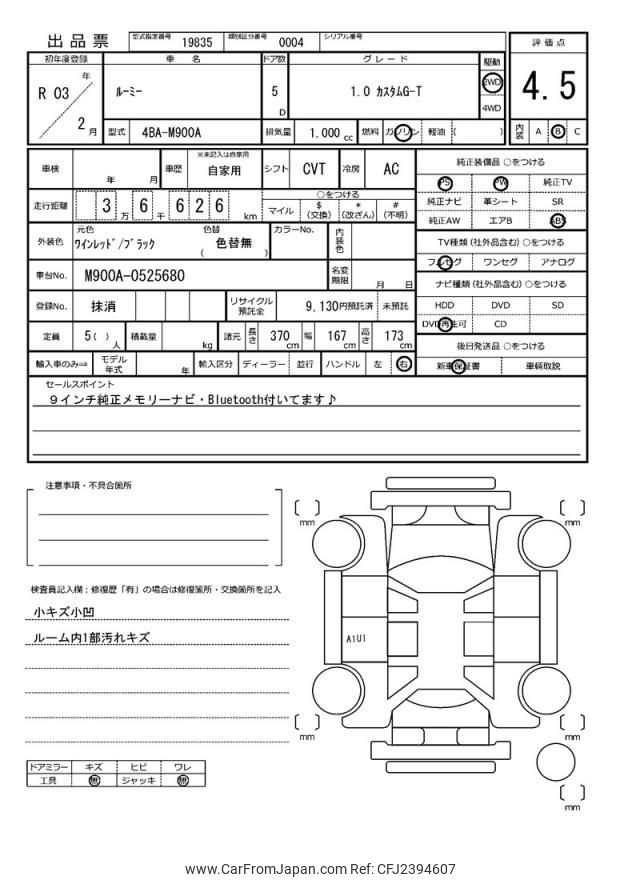 出品票 型式指定番号 19835 類別区分番号 0004 シリアル番号
評価点
4.5
内装 A B C
初年度登録 車名 ドア数 グレード 駆動
R 03 年 2 月 ルーミー 5 D 1.0 カスタムG-T 2WD 4WD
型式 4BA-M900A 排気量 1.000 cc 燃料 ガソリン 軽油 ( )
車検 年 月 車歴 ※未記入は自家用 自家用 シフト CVT 冷房 AC
走行距離 3 万 6 千 6 2 6 km ○をつける
マイル $(交換) *(改ざん) #(不明)
外装色 元色 ワインレッド/ブラック 色替 ( 色替無 ) カラーNo. 内装色
車台No. M900A-0525680 名変期限 月 日
登録No. 抹消 リサイクル預託金 9,130円預託済 未預託
定員 5( )人 積載量 kg 諸元 長さ 370 cm 幅 167 cm 高さ 173 cm
輸入車のみ⇒ モデル年式 年 輸入区分 ディーラー 並行 ハンドル 左 右
純正装備品 ○をつける
PS PW 純正TV
純正ナビ 革シート SR
純正AW エアB ABS
TV種類 (社外品含む) ○をつける
フルセグ ワンセグ アナログ
ナビ種類 (社外品含む) ○をつける
HDD DVD SD
DVD再生可 CD
後日発送品 ○をつける
新車保証書 車輌取説
セールスポイント
9インチ純正メモリーナビ・Bluetooth付いてます♪
注意事項・不具合箇所
検査員記入欄：修復歴「有」の場合は修復箇所・交換箇所を記入
小キズ小凹
ルーム内1部汚れキズ
ドアミラー キズ ヒビ ワレ
工具 無 ジャッキ 無
mm
mm
A1U1
mm
mm
mm
www.CarFromJapan.com Ref: CFJ2394607